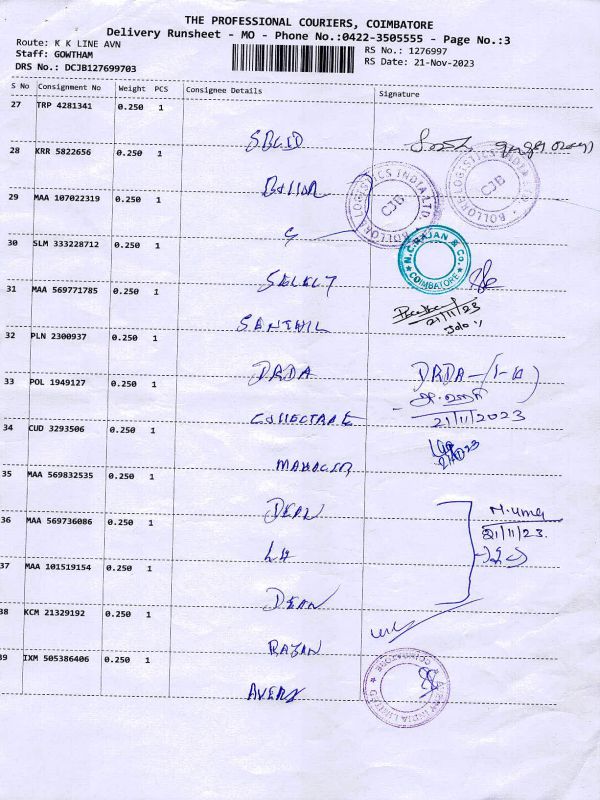 THE PROFESSIONAL COURIERS, COIMBATORE
Delivery Runsheet - MO - Phone No.:0422-3505555 - Page No.:3
Route: K K LINE AVN
RS No.: 1276997
Staff: GOWTHAM
RS Date: 21-Nov-2023
DRS No.: DCJB127699703
S No Consignment No Weight PCS Consignee Details Signature
27 TRP 4281341 0.250 1
28 KRR 5822656 0.250 1
BOLLORE LOGISTICS INDIA LTD. CJB
BOLLORE LOGISTICS INDIA CJB
29 MAA 107022319 0.250 1
30 SLM 333228712 0.250 1
SELECT
N.C.RAJAN & Co. COIMBATORE
31 MAA 569771785 0.250 1
SENTHIL
21/11/23
32 PLN 2300937 0.250 1
DRDA
DRDA
33 POL 1949127 0.250 1
21/11/2023
34 CUD 3293506 0.250 1
35 MAA 569832535 0.250 1
DEAN
M.uma
21/11/23.
36 MAA 569736086 0.250 1
LH
37 MAA 101519154 0.250 1
DEAN
38 KCM 21329192 0.250 1
RAJAN
39 IXM 505386406 0.250 1
AVERY
AVERY INDIA LIMITED COIMBATORE